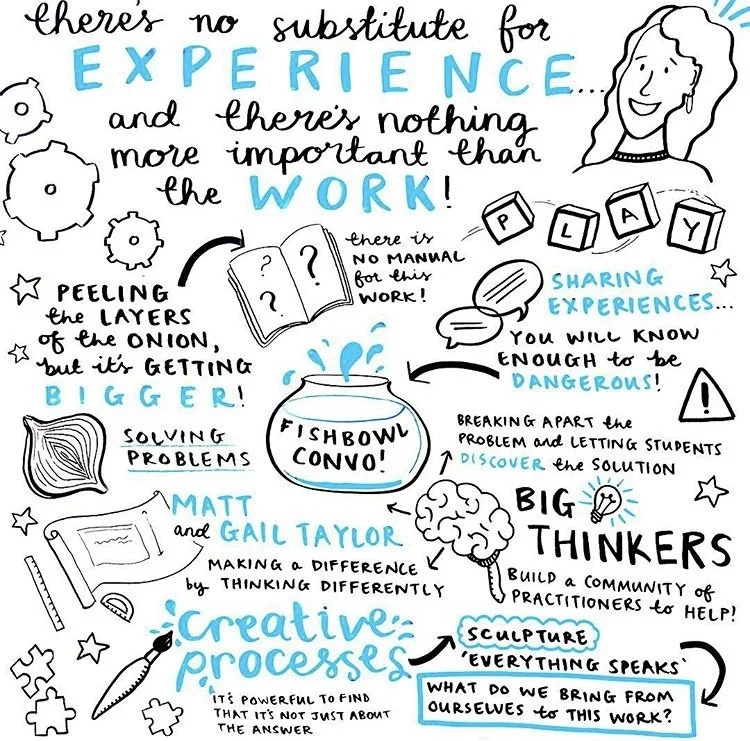 there's no substitute for
EXPERIENCE...
and there's nothing
more important than
the WORK!
PLAY
? ? ?
there is
NO MANUAL
for this
WORK!
PEELING
the LAYERS
of the ONION,
but it's GETTING
BIGGER!
SHARING
EXPERIENCES...
YOU WILL KNOW
ENOUGH to be
DANGEROUS!
!
FISHBOWL
CONVO!
SOLVING
PROBLEMS
BREAKING APART the
PROBLEM and LETTING STUDENTS
DISCOVER the SOLUTION
MATT
and GAIL TAYLOR
MAKING a DIFFERENCE
by THINKING DIFFERENTLY
BIG
THINKERS
BUILD a COMMUNITY of
PRACTITIONERS to HELP!
creative
processes
IT'S POWERFUL TO FIND
THAT IT'S NOT JUST ABOUT
THE ANSWER
SCULPTURE
'EVERYTHING SPEAKS'
WHAT DO WE BRING FROM
OURSELVES to THIS WORK?